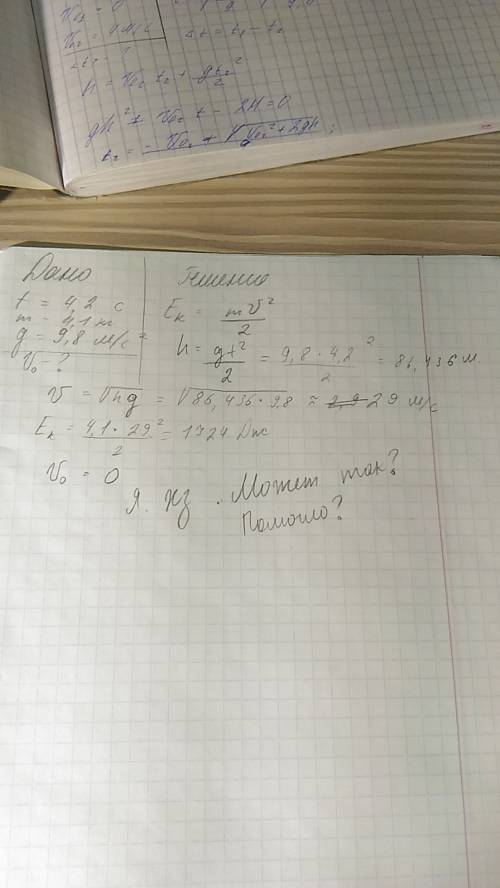 V₀₂ = 4 м/с
Δt = t₁ − t₂
Δt - ?
H = V₀₂ t₂ + gt₂²/2
gt² + V₀₂ t − 2H = 0
t₂ = − V₀₂ + √V₀₂² + 2gH ;
Дано
Решение
t = 4,2 с
m = 4,1 кг
g = 9,8 м/с²
V₀ - ?
Eₖ = mV²/2
h = gt²/2 = 9,8 · 4,2²/2 = 86,436 м
V = √hg = √86,436 · 9,8 ≈ 29 м/с
Eₖ = 4,1 · 29²/2 = 1724 Дж
V₀ = 0
Я. ХЗ. Может так?
Помогло?